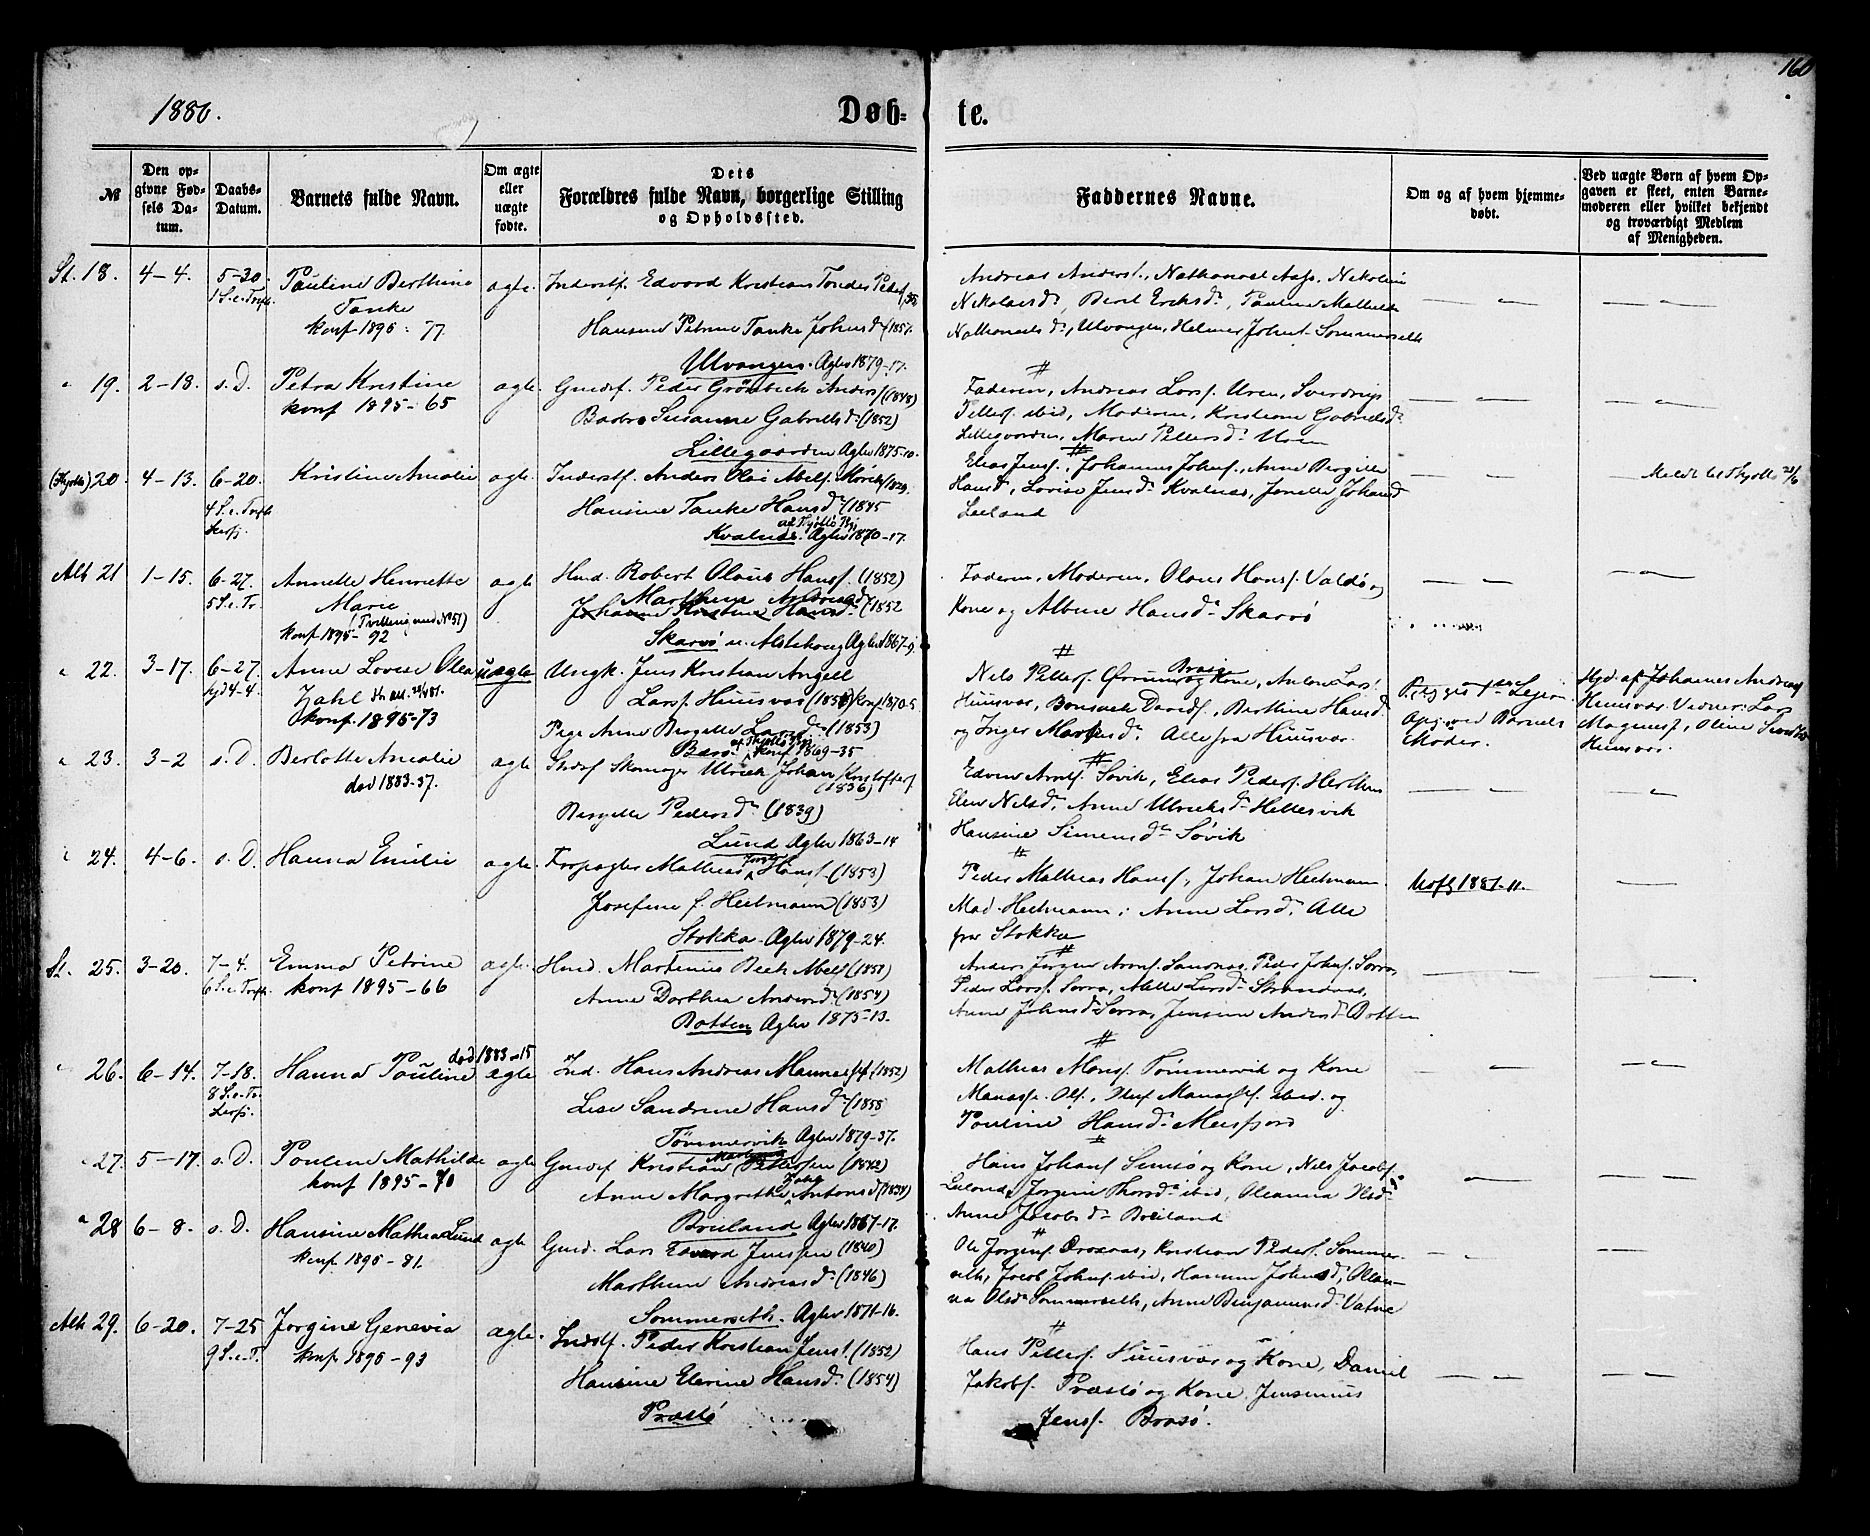 160
1880.
Døb-te.
№
Den opgivne Fødsels Datum.
Daabs-Datum.
Barnets fulde Navn.
Om ægte eller uægte fødte.
Dets Forældres fulde Navn, borgerlige Stilling og Opholdssted.
Faddernes Navne.
Om og af hvem hjemmedøbt.
Ved uægte Børn af hvem Opgaven er skeet, enten Barnemoderen eller hvilket bekjendt og troværdigt Medlem af Menigheden.
St. 18. 4-4. 5-30. Pauline Berthine
Tanke
Konf 1895-77.
ægte. Inderstf. Edvard Kristian Tonder Peders
Hansine Petrine Tanke Johnsdr (1851.
Ulvangen. Aglev 1879-17.
Andreas Anders., Nathanael Aags., Nikoline
Nikolaisdr, Beret Eriksdr, Pauline Mathilde
Nathanaelsdr, Ulvangen, Helmer Johns. Sommerseth
19. 2-18. s.D. Petra Kristine
konf 1895-65
ægte. Gmdsf. Peder Grönbech Anders (1848)
Susanne Gabrielsdr (1852)
Lillegaarden Aglev 1875-10.
Faderen, Andreas Larss. Uren, Sverdrup
Petters. ibid, Moderen, Kristiane Gabrielsdr
Lillegaarden, Maren Pettersdr Uren
(Thjøtta) 20. 4-13. 6-20. Kristine Amalie
4 S.e.Trft.
ægte. Inderstf. Anders Olai Abels. Mörch
Hansine Tanke Hansdr (1845
Kvalnes. Aglev 1870-17.
Elias Jenss., Johannes Johns., Anne Bergitte
Hansdr, Lovise Jensdr Kvalnes, Jonette Johansdr
Leeland
Meldt til Thjøtta 21/6
Alh 21 1-15. 6-27. Annette Henriette
5 S.e.Tr. Marie
(Tvilling med No 51)
konf 1895-92
ægte Hmd. Robert Olaus Hanss. (1852)
Marthine Andreasdr (1852
Johanne Kristine Hansdr
Skarvø Aglev 1867-9.
Faderen, Moderen, Olaus Hanss. Valdø og
Kone og Albine Hansdr Skarvø
22. 3-17. 6-27. Anne Lovise Olea
Zahl
konf. 1895-73
uægte Ungk. Jens Kristian Angell
Larss. Huusvær
Pige Anne Bergitte Larsdr (1853)
konf. 1869-35
Nils Petters. og Kone, Anton Lars.
Huusvær, Davids., Berthine Hansdr
og Inger Marie Alle fra Huusvær.
Moder.
Hjd. af Johannes Andreas
Huusvær. Vidner: Lars
Magnuss., Oline
Huusvær.
23. 3-2 s.D. Berlotte Amalie
død 1883-37.
ægte Skomager Ulrich Johan Kristoffers.
(1836)
Bergitte Pedersdr (1839)
Lund Aglev 1863-14
Edvin Arnts. Søvik, Elias Peders.
Elen Nilsdr, Anne Ulriksdr Hellesvik
Hansine Simensdr Søvik
24. 4-6. s.D. Hanna Emilie
ægte. Forpagter Mathias Hans. (1853)
Josefine f. Heitmann (1853)
Stokka. Aglev 1879-24.
Peder Mathias Hans., Johan Heitmann
Mad. Heitmann, Anne Larsdr. Alle
fra Stokka
1881-11.
St. 25. 3-20. 7-4. Emma Petrine
konf 1895-66
ægte. Hmd. Martinus Bech Abels (1851)
Anne Dorthea Andersdr (1854)
Botten Aglev 1875-13.
Anders Jørgen Arons. Sandnes, Peder Johns. Sorra,
Peder Larss. Sorra, Mette Larsdr Strandnes,
Anne Johnsdr Sorra, Jensine Andersdr Botten
26. 6-14. 7-18. Hanna Pauline
død 1883-15
ægte Ind. Hans Andreas Manass. (1852)
Lise Sandrine Hansdr (1858
Tømmervik Aglev 1879-37.
Mathias Mons. Tømmervik og Kone
Manasse Ols., Oluf Manasses. ibid. og
Pauline Hansdr Meisfjord
27. 5-17. s.D. Pauline Mathilde
konf 1895-70
ægte Gmdsf Kristian Pettersen (1842)
Anne Margrethe Antonsd
Breiland Aglev 1867-17.
Hans Johans. og Kone, Nils Jacobs.
Leland, Jørgine Thorsdr ibid, Oleanna Olsdr
Anne Jacobsdr Breiland
28 6-8. s.D. Hansine Mathea Lund
konf 1895-81.
ægte Gmd. Lars Edvard Jenssen (1840)
Marthine Andreasdr (1846)
Sommerseth. Aglev 1871-16.
Ole Jørgens. Kristian Peders. Sommer-
seth, Jacob Johns. ibid, Hanna Johnsdr, Olean-
na Olsdr Sommerseth, Anne Benjaminsdr Vatne
Alh 29. 6-20. 7-25 Jørgine Genevia
9 S.e.T. konf 1895-93
ægte. Indstf. Peder Kristian Jens. (1852)
Hansine Elerine Hansdr. (1854)
Præstø
Hans Petters. Huusvær og Kone, Daniel
Jakobs. Præstø og Kone, Jensenius
Jenss. Brasø.